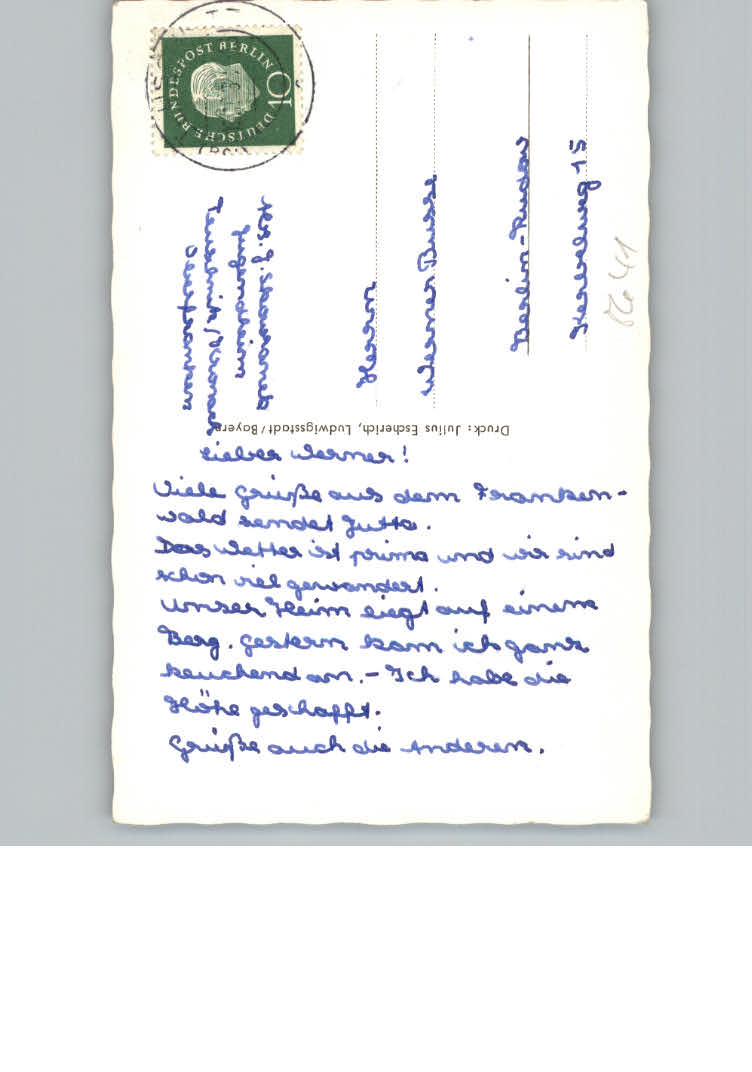 DEUTSCHE BUNDESPOST BERLIN
10
Abs. J.
Jugendheim
Teuschnitz/Kronach
Oberfranken
Herrn
Werner Busse
Berlin-Rudow
15
Druck: Julius Escherich, Ludwigsstadt/Bayern
Lieber Werner!
Viele Grüße aus dem Franken-
wald sendet Jutta.
Das Wetter ist prima und wir sind
schon viel gewandert.
Unser Heim liegt auf einem
Berg. Gestern kam ich ganz
keuchend an. – Ich habe die
Höhe geschafft.
Grüße auch die Anderen.